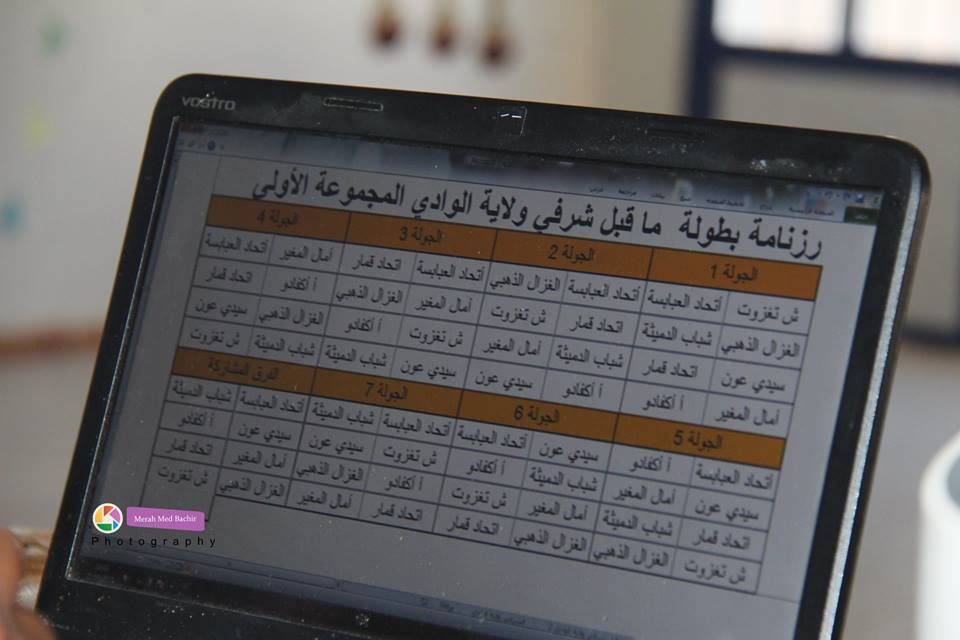 vostro
رزنامة بطولة ما قبل شرفي ولاية الوادي المجموعة الأولى
الجولة 1 الجولة 2 الجولة 3 الجولة 4
ش تغزوت أتحاد العبابسة أتحاد العبابسة الغزال الذهبي أتحاد العبابسة اتحاد قمار أمال المغير أتحاد العبابسة
الغزال الذهبي شباب الدميثة اتحاد قمار ش تغزوت أمال المغير الغزال الذهبي أ أكفادو اتحاد قمار
سيدي عون اتحاد قمار شباب الدميثة أمال المغير ش تغزوت أ أكفادو الغزال الذهبي سيدي عون
أمال المغير أ أكفادو أ أكفادو سيدي عون سيدي عون شباب الدميثة شباب الدميثة ش تغزوت
الجولة 5 الجولة 6 الجولة 7 الفرق المشاركة
أتحاد العبابسة أ أكفادو سيدي عون أتحاد العبابسة أتحاد العبابسة شباب الدميثة أتحاد العبابسة شباب الدميثة
سيدي عون أمال المغير شباب الدميثة أ أكفادو ش تغزوت سيدي عون سيدي عون أ أكفادو
اتحاد قمار شباب الدميثة أمال المغير ش تغزوت أ أكفادو الغزال الذهبي أمال المغير اتحاد قمار
ش تغزوت الغزال الذهبي الغزال الذهبي اتحاد قمار اتحاد قمار أمال المغير الغزال الذهبي ش تغزوت
Merah Med Bachir
Photography